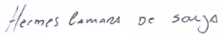 Hermes Lamara de Souza